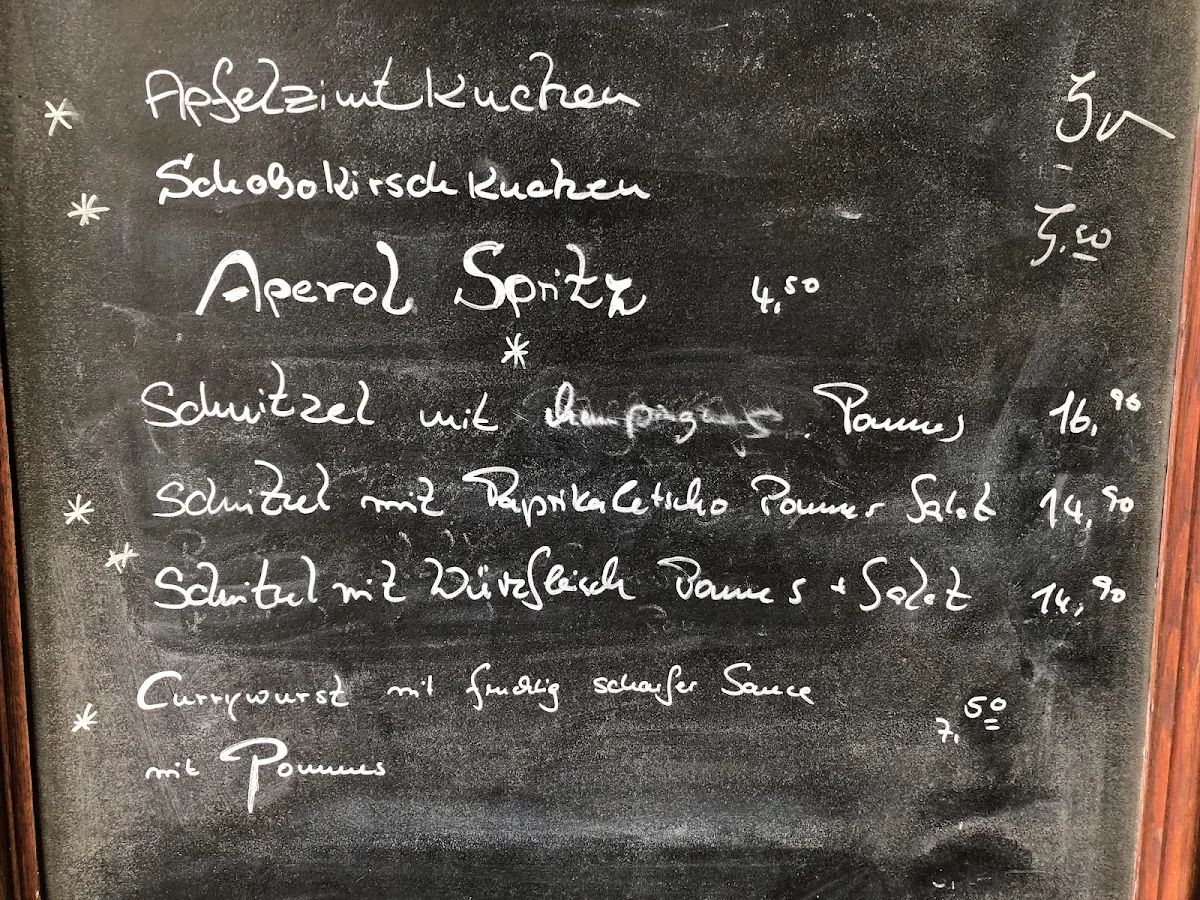 * Apfelzimtkuchen
* Schokokirschkuchen 3,50
Aperol Spritz 4,50
*
Schnitzel mit Pommes 16,90
* Schnitzel mit Paprikaletscho Pommes Salat 14,90
* Schnitzel mit Würzfleisch Pommes + Salat 14,90
* Currywurst mit fruchtig scharfer Sauce 7,50
mit Pommes